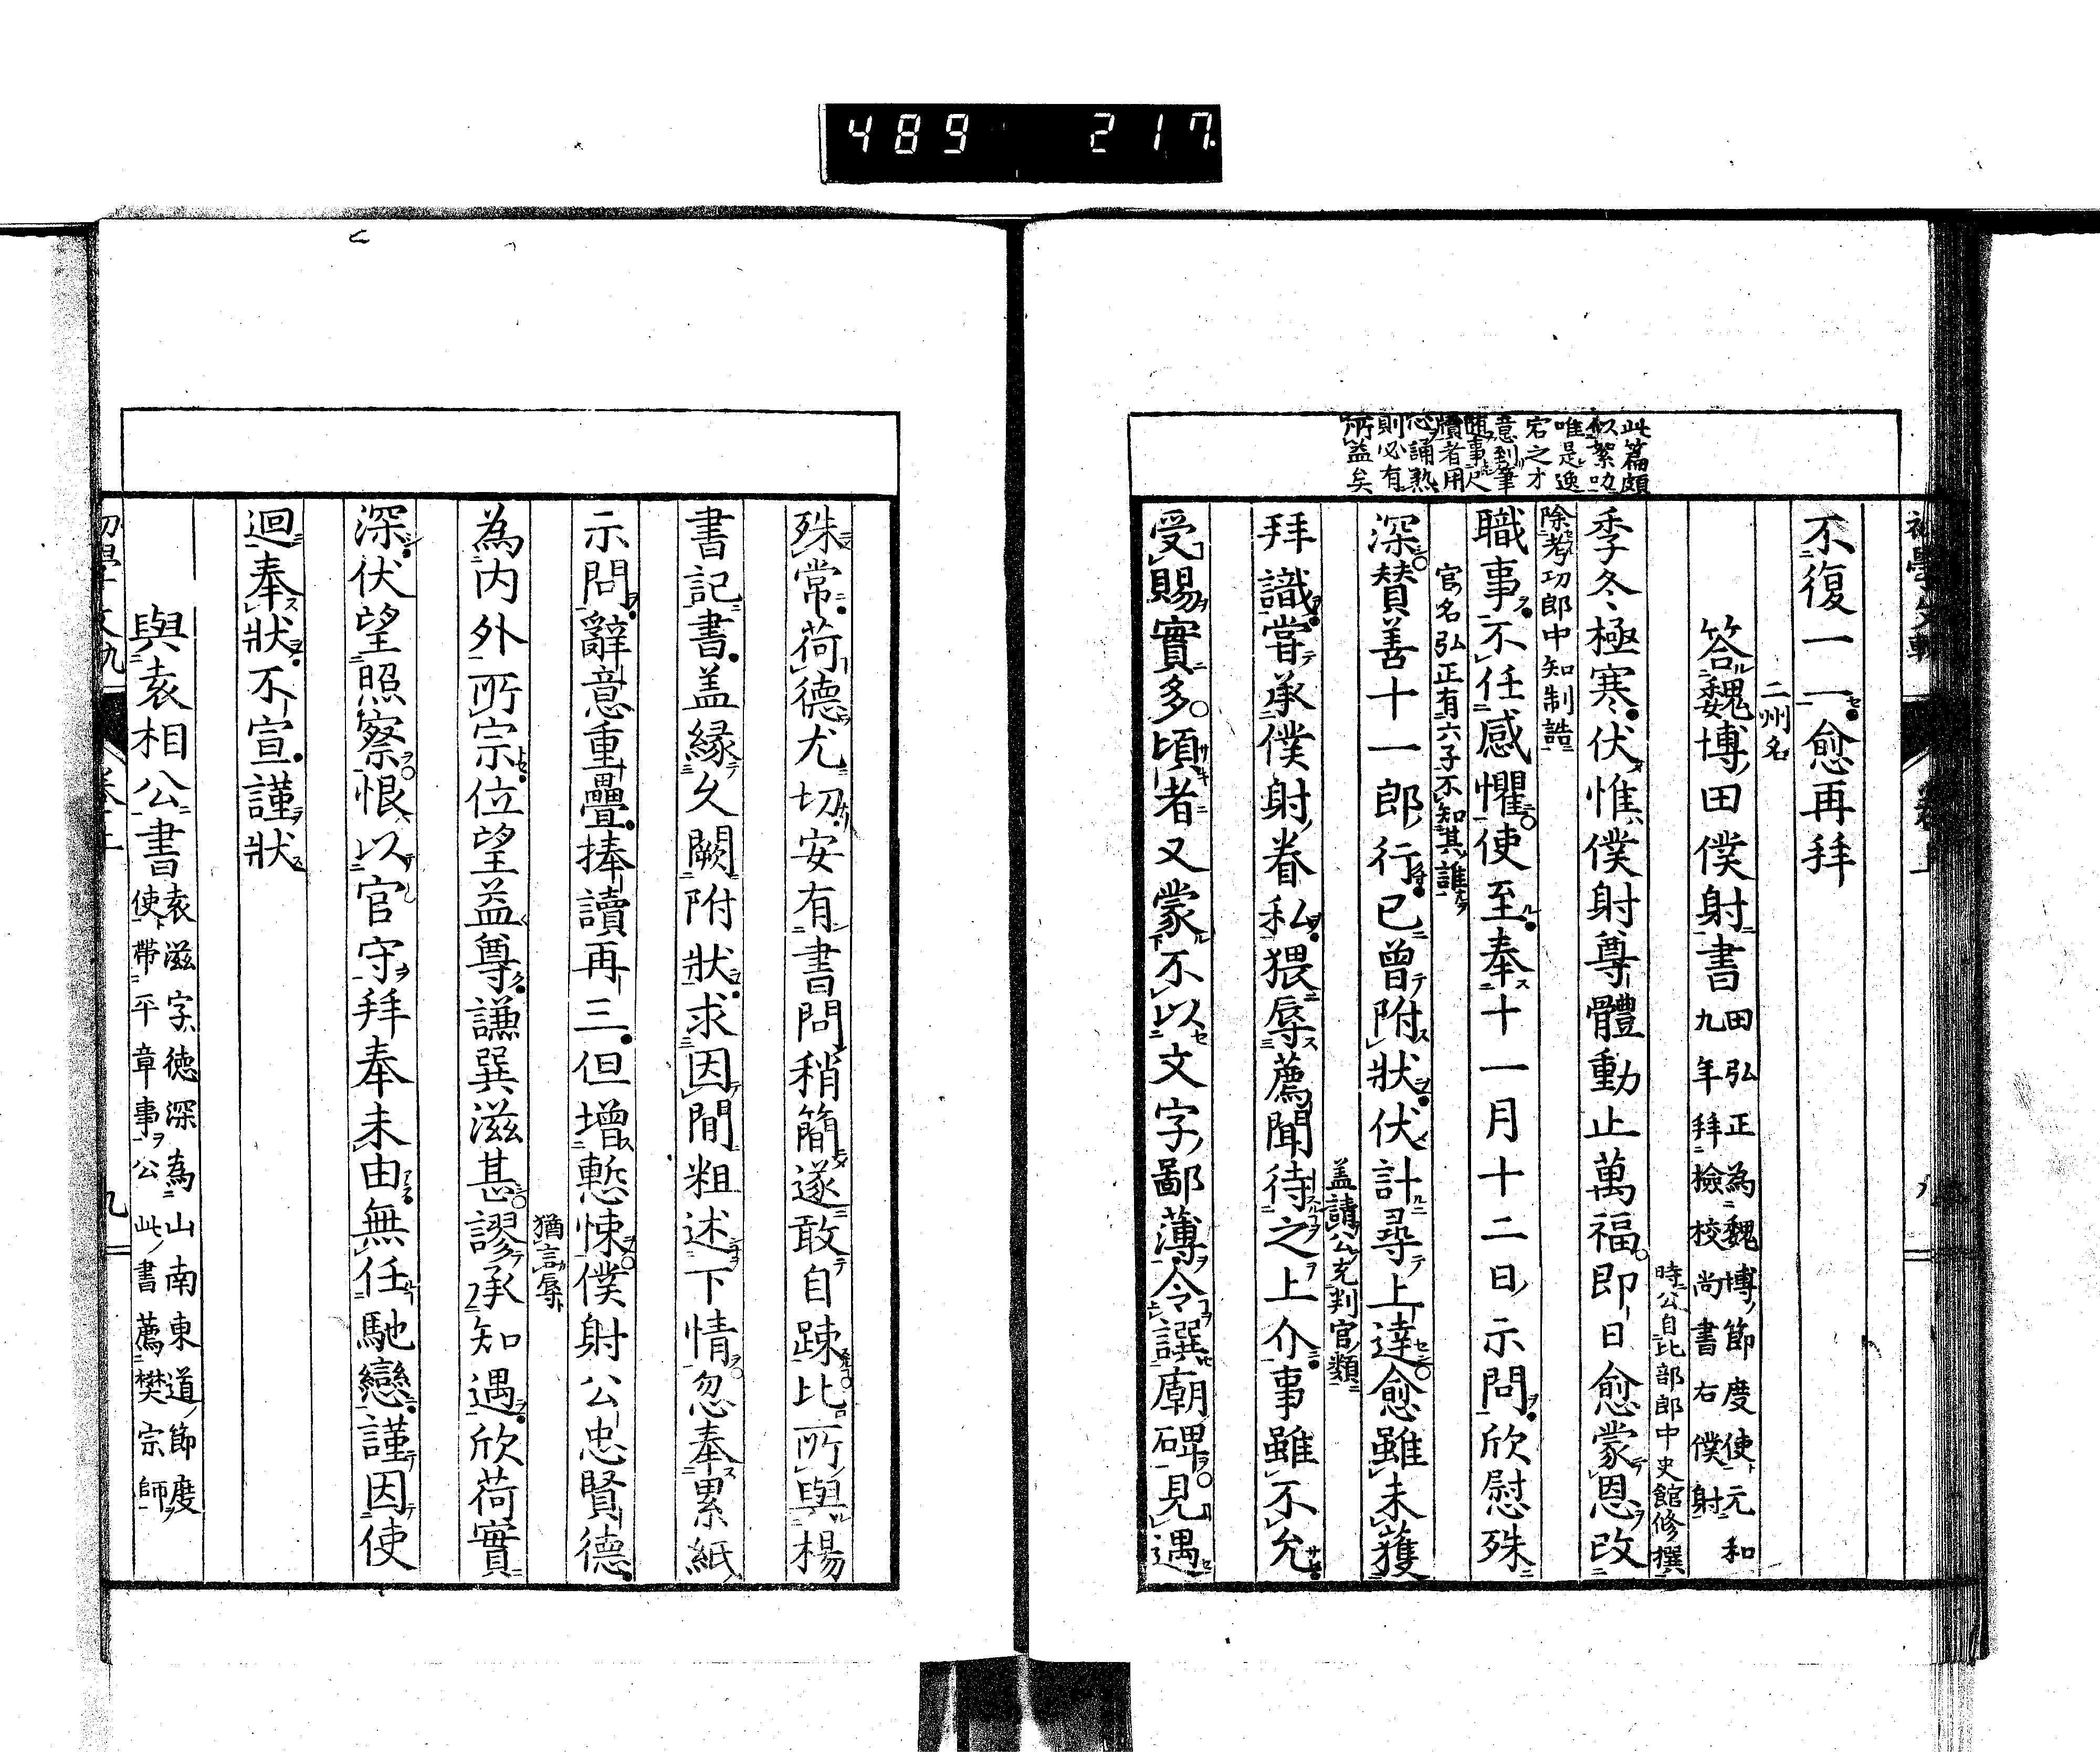 489 217
此篇頗
似絮叨
唯是逸
宕之才
意到筆
隨事尺
牘者用
心誦熟
則必有
所益矣
不復一一愈再拜
二州名
答魏博田僕射書
田弘正為魏博節度使元和
九年拜檢校尚書右僕射
時公自比部郎中史館修撰
季冬極寒伏惟僕射尊體動止萬福即日愈蒙恩改
除考功郎中知制誥
職事不任感懼使至奉十一月十二日示問欣慰殊
官名弘正有六子不知其誰
深贊善十一郎行已曾附狀伏計尋上達愈雖未獲
蓋請公充判官類
拜識嘗承僕射眷私猥辱薦聞待之上介事雖不允
受賜實多頃者又蒙不以文字鄙薄令譔廟碑見遇
殊常荷德尤切安有書問稍簡遂敢自踈比所與楊
書記書盖緣久闕附狀求因間粗述下情忽奉累紙
示問辭意重疊捧讀再三但增慙悚僕射公忠賢德
猶言辱
為內外所宗位望益尊謙巽滋甚謬承知遇欣荷實
深伏望照察恨以官守拜奉未由無任馳戀謹因使
迴奉狀不宣謹狀
與袁相公書
袁滋字德深為山南東道節度
使帶平章事公此書薦樊宗師
九